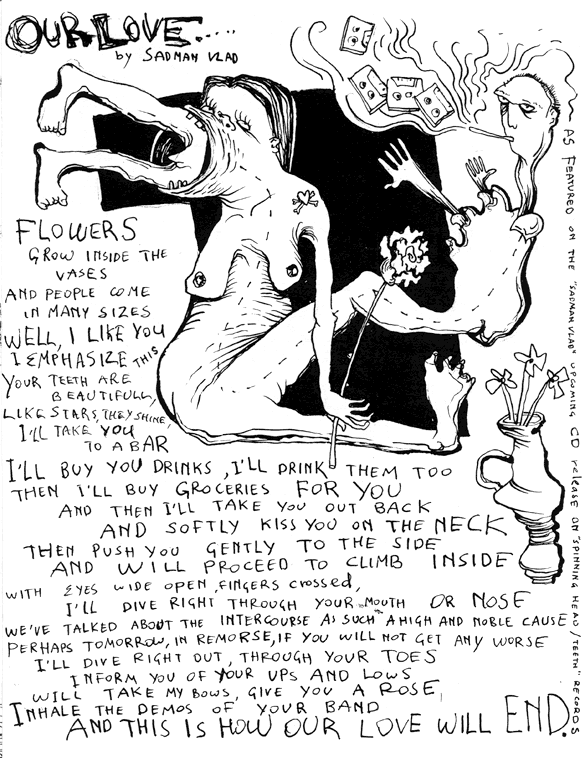 OUR LOVE.....
by SADMAN VLAD
FLOWERS
GROW INSIDE THE
VASES
AND PEOPLE COME
IN MANY SIZES
WELL, I LIKE YOU
I EMPHASIZE THIS
YOUR TEETH ARE
BEAUTIFULL,
LIKE STARS, THEY SHINE,
I'LL TAKE YOU
TO A BAR
I'LL BUY YOU DRINKS, I'LL DRINK THEM TOO
THEN I'LL BUY GROCERIES FOR YOU
AND THEN I'LL TAKE YOU OUT BACK
AND SOFTLY KISS YOU ON THE NECK
THEN PUSH YOU GENTLY TO THE SIDE
AND WILL PROCEED TO CLIMB INSIDE
WITH EYES WIDE OPEN, FINGERS CROSSED,
I'LL DIVE RIGHT THROUGH YOUR MOUTH OR NOSE
WE'VE TALKED ABOUT THE INTERCOURSE AS SUCH "A HIGH AND NOBLE CAUSE"
PERHAPS TOMORROW, IN REMORSE, IF YOU WILL NOT GET ANY WORSE
I'LL DIVE RIGHT OUT, THROUGH YOUR TOES
INFORM YOU OF YOUR UPS AND LOWS
WILL TAKE MY BOWS, GIVE YOU A ROSE,
INHALE THE DEMOS OF YOUR BAND
AND THIS IS HOW OUR LOVE WILL END.
AS FEATURED ON THE "SADMAN VLAD" UPCOMING CD RELEASE ON "SPINNING HEAD/TEETH" RECORDS